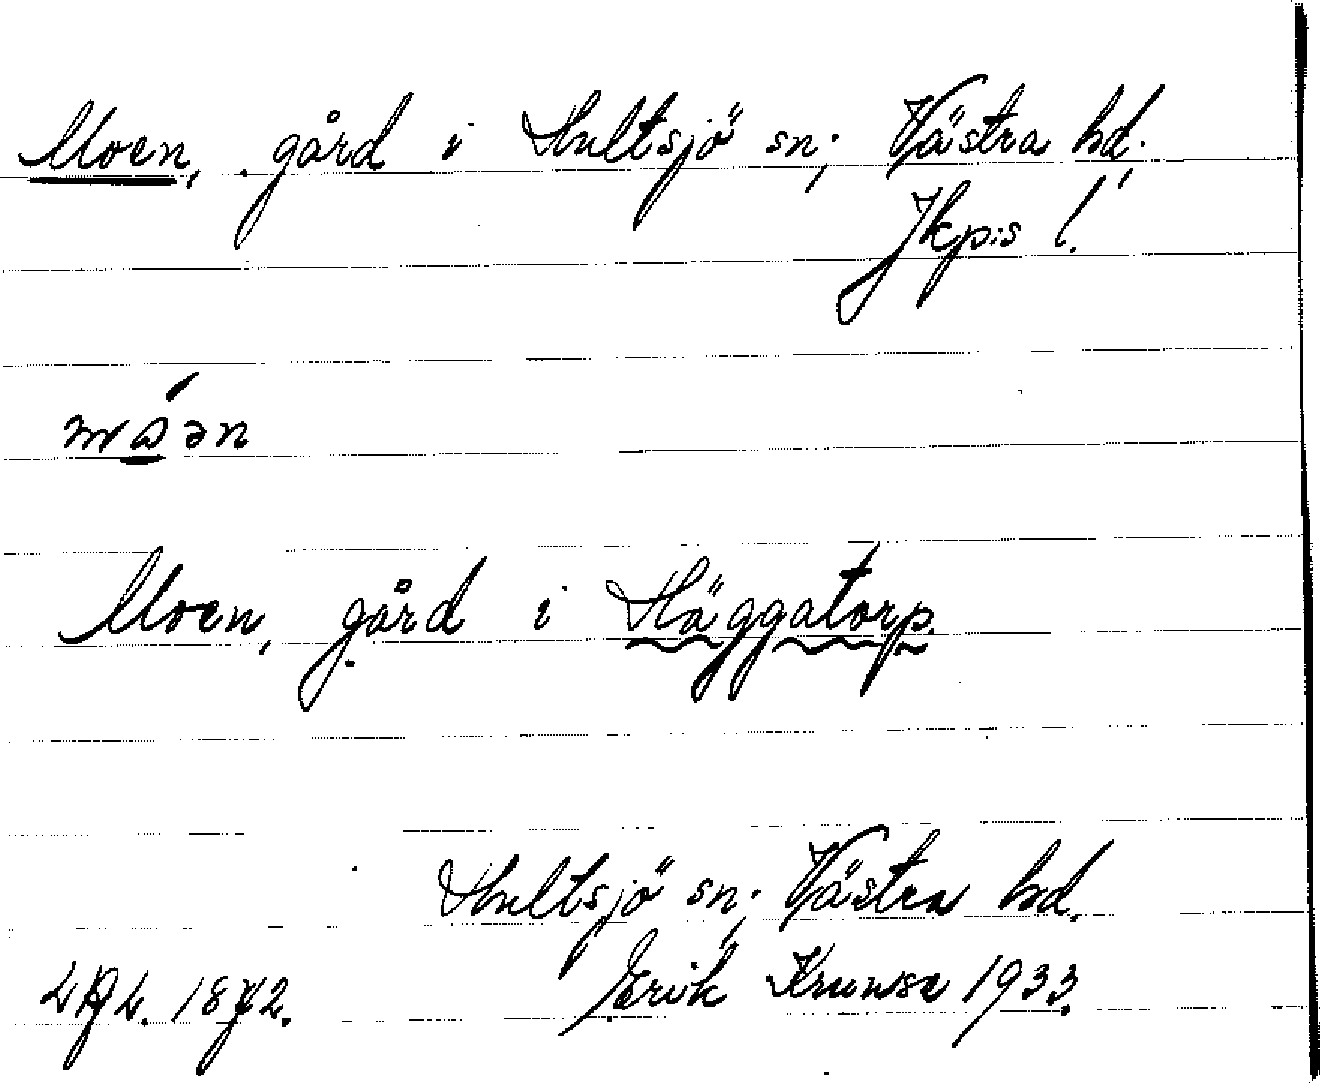 Moen, gård i Hultsjö sn; Västra hd;
Jkp:s l.
Moen, gård i Häggatorp.
Hultsjö sn; Västra hd.
1872. Erik 1933.